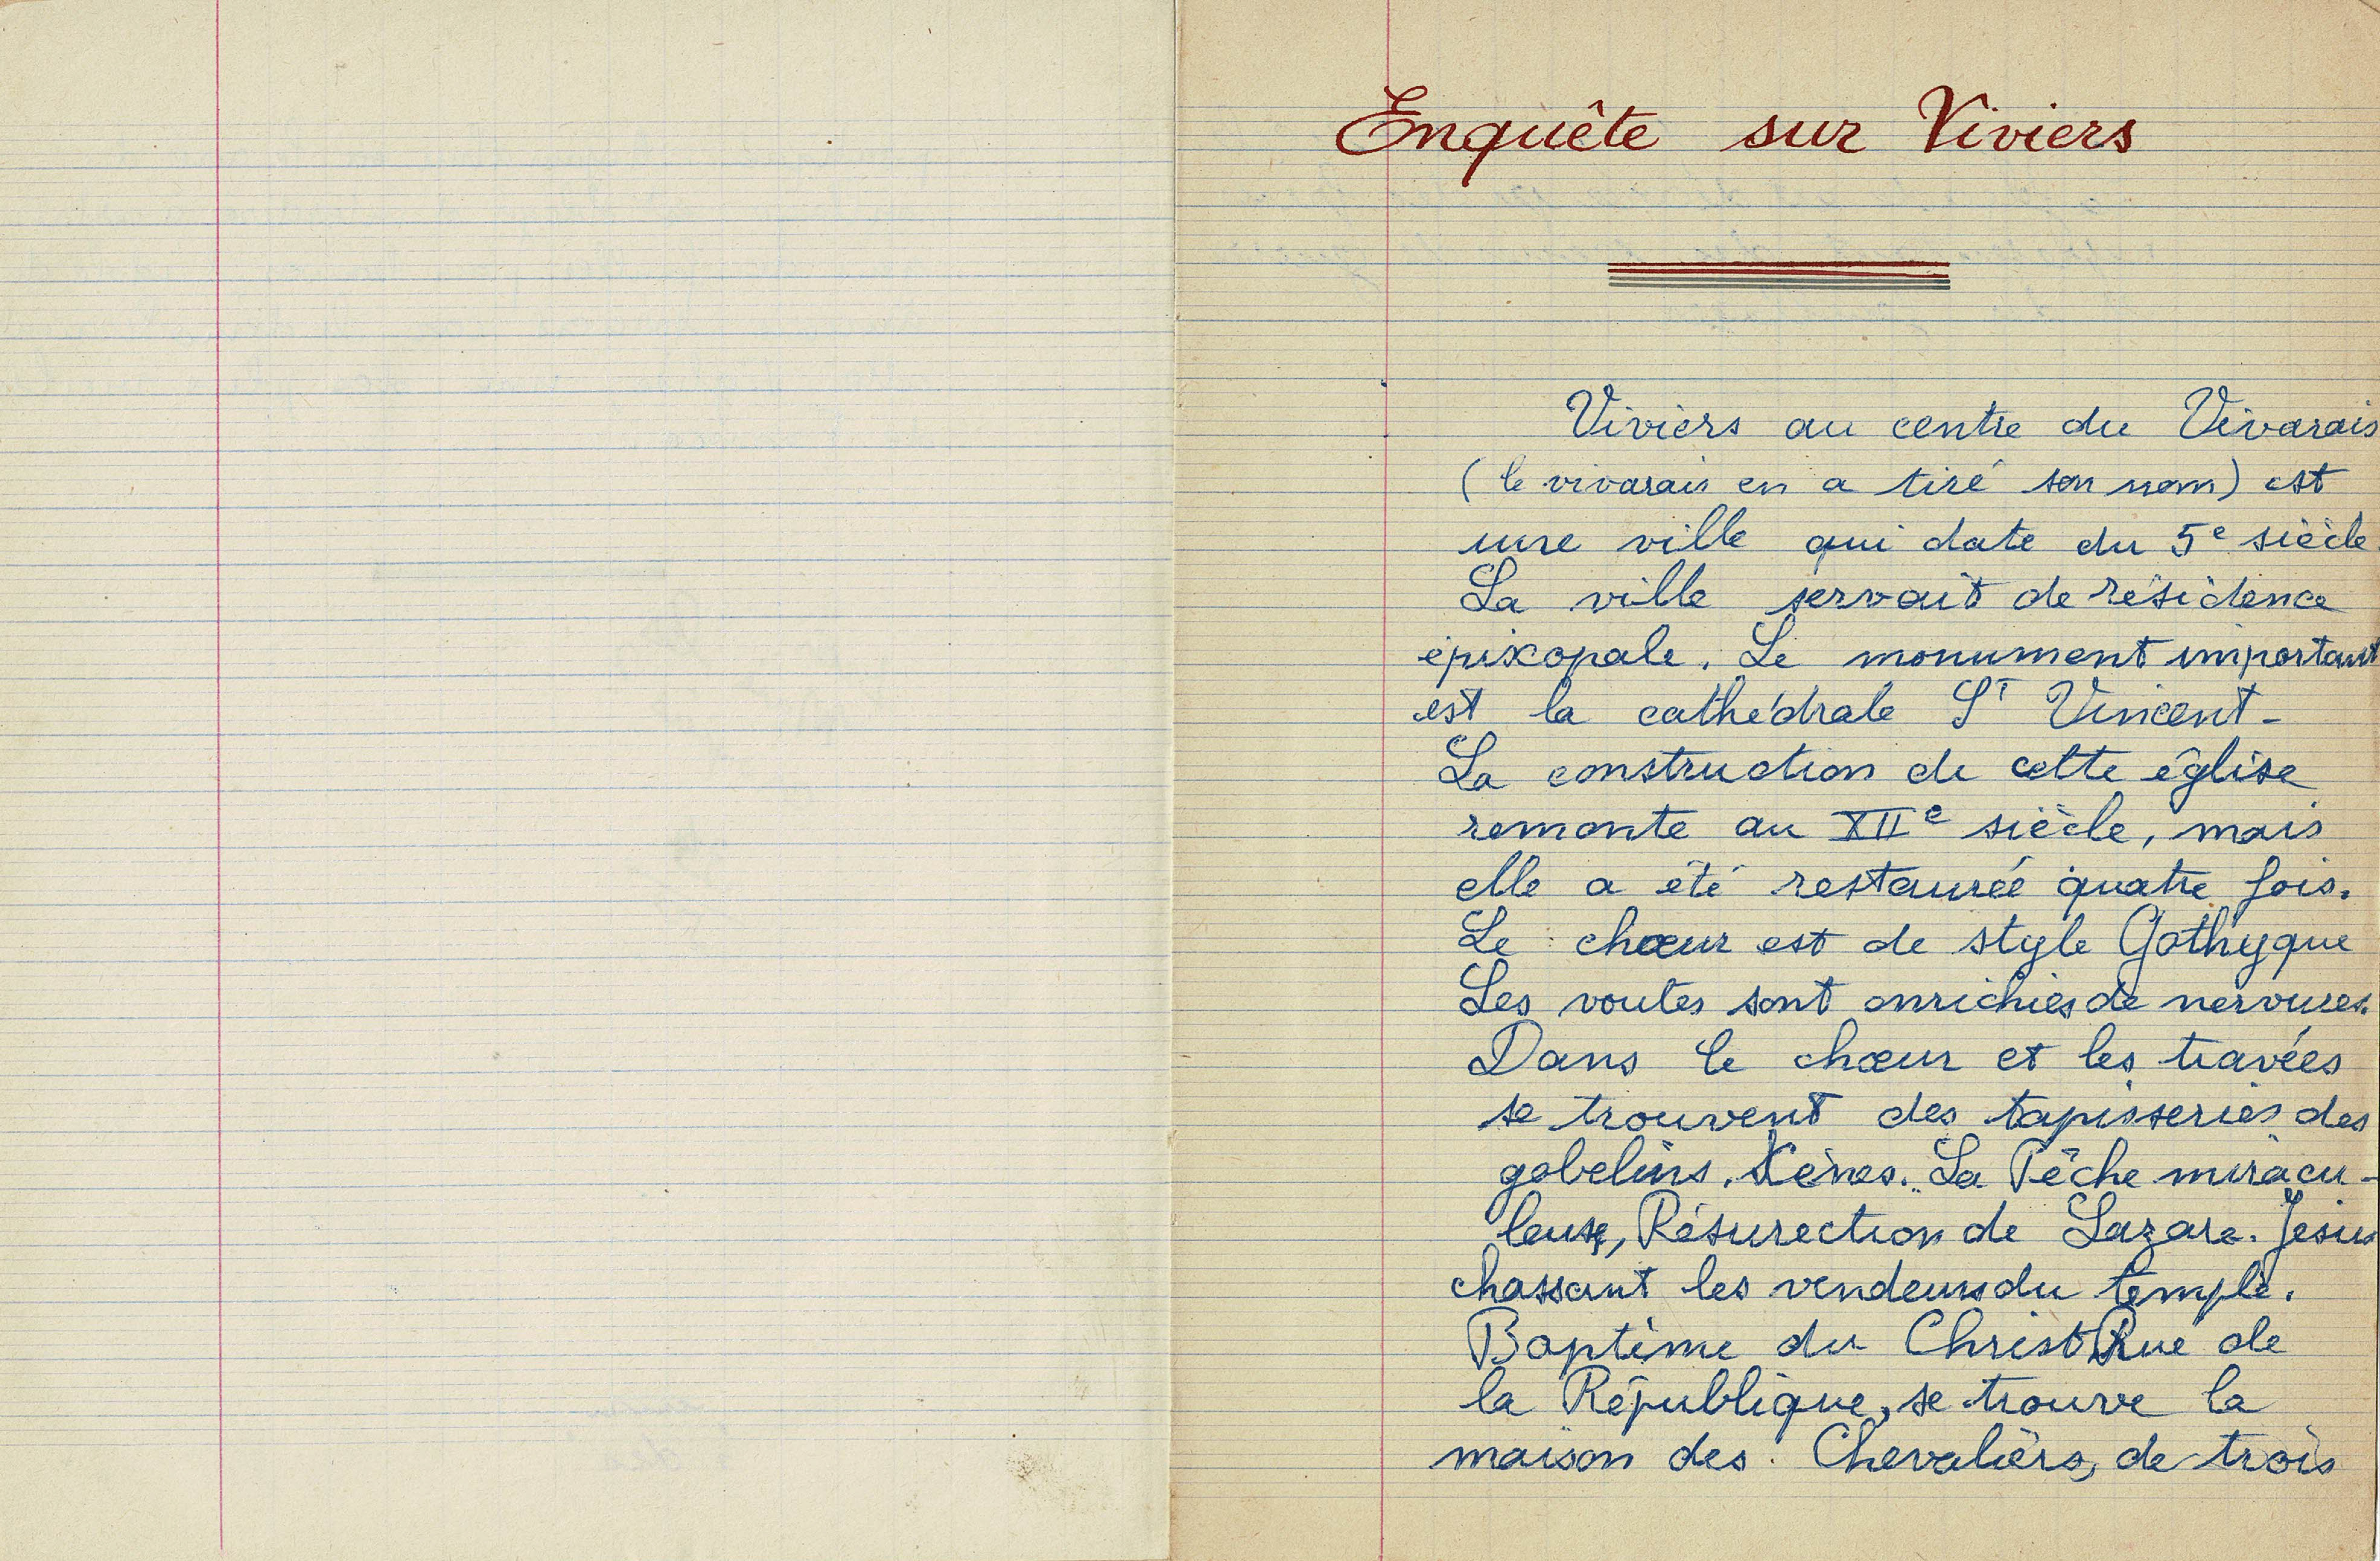 Enquête sur Viviers
Viviers au centre du Vivarais
(le vivarais en a tiré son nom) est
une ville qui date du 5e siècle
La ville servait de résidence
épixopale. Le monument important
est la cathédrale St Vincent-
La construction de cette église
remonte au XIIe siècle, mais
elle a été restaurée quatre fois.
Le chœur est de style Gothyque
Les voutes sont enrichies de nervures.
Dans le chœur et les travées
se trouvent des tapisseries des
gobelins. La Pêche miracu-
leuse, Résurection de Lazare. Jésus
chassant les vendeurs du temple.
Baptême du Christ Rue de
la République, se trouve la
maison des Chevaliers, de trois